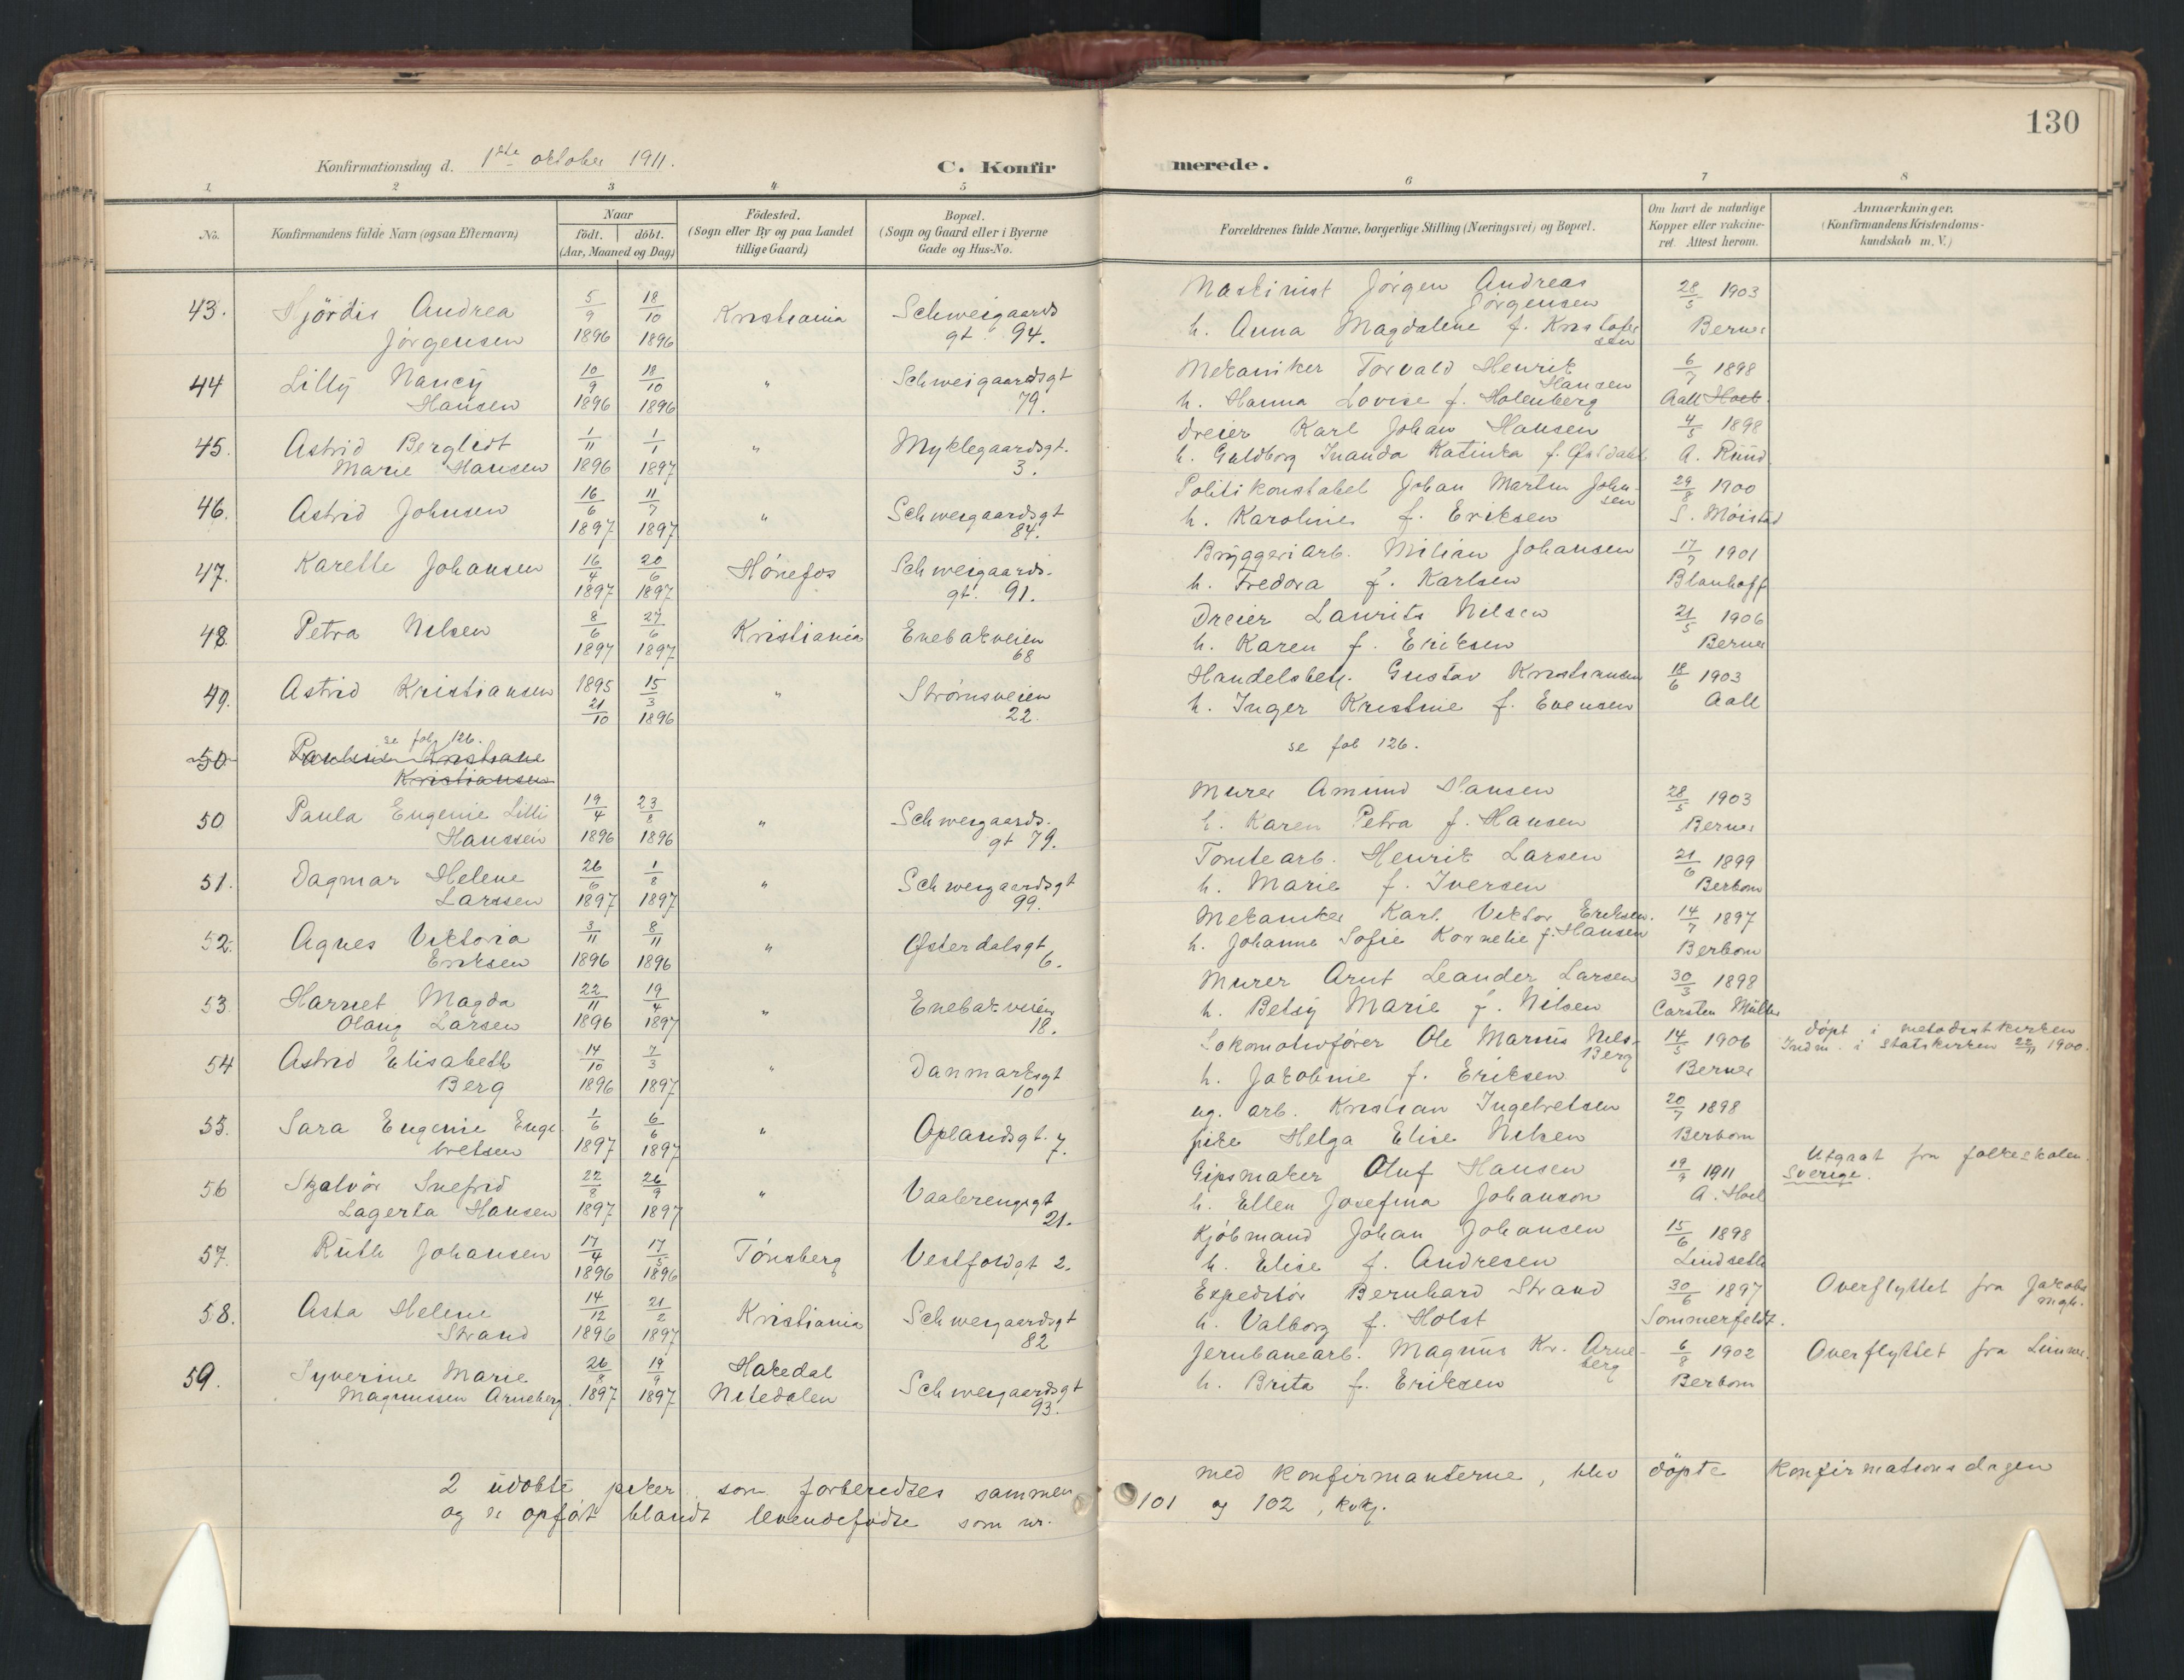 130
Konfirmationsdag d. 1ste oktober 1911. C. Konfirmerede.
1. 2 3 4. 5 6 7 8
No. Konfirmandens fulde Navn (ogsaa Efternavn) Naar födt. döbt. (Aar, Maaned og Dag) Födested. (Sogn eller By og paa Landet tillige Gaard) Bopæl. (Sogn og Gaard eller i Byerne Gade og Hus-No. Forældrenes fulde Navne, borgerlige Stilling (Næringsvei) og Bopæl. Om havt de naturlige Kopper eller vakcineret. Attest herom. Anmærkninger. (Konfirmandens Kristendomskundskab m. V.)
43. Hjördis Andrea 5/9 18/10 Kristiania Schweigaards Maskinist Jörgen Andreas Jörgensen 28/5 1903
Jörgensen 1896 1896 gt. 94. h. Anna Magdalene f. Kristofersen Berner
44 Lilly Nancy 10/9 18/10 " Schweigaardsgt Mekaniker Torvald Henrik Hansen 6/7 1898
Hansen 1896 1896 79. h. Hanna Lovise f. Holenberg Aall Hoel
45. Astrid Bergliot 1/11 1/1 " Myklegaardsgt. Dreier Karl Johan Hansen 4/5 1898
Marie Hansen 1896 1897 3. h. Guldborg Inanda Katinka f. A. Rund
46. Astrid Johnsen 16/6 11/7 " Schweigaardsgt Politikonstabel Johan Martin Johnsen 29/8 1900
1897 1897 84. h. Karoline f. Eriksen S. Möistad
47. Karelle Johansen 16/4 20/6 Hönefos Schweigaards- Bryggeriarb. Milian Johansen 17/7 1901
1897 1897 gt. 91. h. Fredora f. Karlsen Blauhoff
48. Petra Nilsen 8/6 27/6 Kristiania Enebakveien Dreier Laurits Nilsen 21/5 1906
1897 1897 68 h. Karen f. Eriksen Berner
49. Astrid Kristiansen 1895 15/3 " Strömsveien Handelsbetj. Gustav Kristiansen 18/6 1903
21/10 1896 22. h. Inger Kristine f. Evensen Aall
se fol 126.
50 Pauline Kristiane se fol 126.
Kristiansen
50 Paula Eugenie Lilli 19/4 23/8 " Schweigaards- Murer Amund Hansen 28/5 1903
Hanssen 1896 1896 gt 79. h. Karen Petra f. Hansen Berner
51. Dagmar Helene 26/6 1/8 " Schweigaardsgt Tomtearb. Henrik Larsen 21/6 1899
Larssen 1897 1897 99. h. Marie f. Iversen Berbom
52. Agnes Viktoria 3/11 8/11 " Østerdalsgt Mekaniker Karl Viktor Eriksen. 14/7 1897
Eriksen 1896 1896 6. h. Johanne Sofie Kornelie f. Hansen Berbom
53. Harriet Magda 22/11 19/4 " Enebakveien Murer Arnt Leander Larsen 30/3 1898
Olaug Larsen 1896 1897 18. h. Betsy Marie f. Nilsen Carsten Müller
54 Astrid Elisabeth 14/10 7/3 " Danmarksgt Lokomotivförer Ole Marius Nils- Berg 14/5 1906 döpt i metodistkirken
Berg 1896 1897 10 h. Jakobine f. Eriksen Berner Indm. i Statskirken 22/11 1900.
55. Sara Eugenie Enge- 1/6 6/6 " Oplandsgt. 7. ug. arb. Kristian Ingebretsen 20/7 1898
bretsen 1897 1897 pike Helga Elise Nilsen Berbom
56 Skjalvör Snefrid 22/8 26/9 " Vaalerengsgt Gipsmaker Oluf Hansen 19/9 1911 Utgaat fra folkeskolen.
Lagerta Hansen 1897 1897 21. h. Ellen Josefina Johanson A. Hoel Sverige.
57. Ruth Johansen 17/4 17/5 Tönsberg Vestfoldgt 2. Kjöbmand Johan Johansen 15/6 1898
1896 1896 h. Elise f. Andresen Lindseth
58. Asta Helene 14/12 21/2 Kristiania Schweigaardsgt Expeditör Bernhard Strand 30/6 1897 Overflyttet fra Jakobs
Strand 1896 1897 82 h. Valborg f. Holst Sommerfeldt. mgh.
59. Syverine Marie 26/8 19/9 Hakedal Schweigaardsgt Jernbanearb. Magnus Kr. Arneberg 6/8 1902 Overflyttet fra
Magnussen Arneberg 1897 1897 Nitedalen 93. h. Brita f. Eriksen Berbom
2 udöbte piker som forberedtes sammen med konfirmanterne, blev döpte konfirmationsdagen
og er opfört blandt levendefödte som nr. 101 og 102, kvkj.